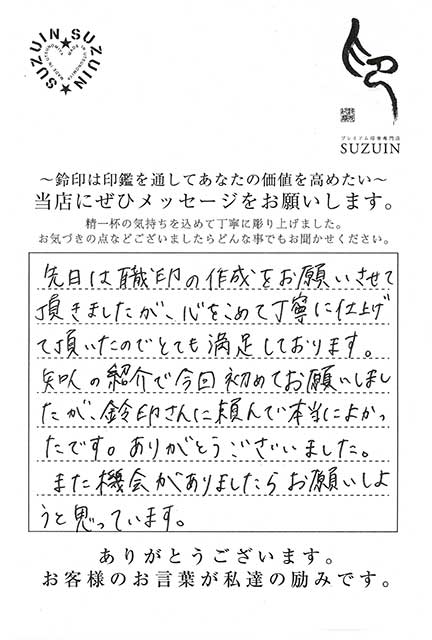 SUZUIN★SUZUIN★
プレミアム印章専門店
SUZUIN
～鈴印は印鑑を通してあなたの価値を高めたい～
当店にぜひメッセージをお願いします。
精一杯の気持ちを込めて丁寧に彫り上げました。
お気づきの点などございましたらどんな事でもお聞かせください。
先日は職印の作成をお願いさせて
頂きましたが、心をこめて丁寧に仕上げ
て頂いたのでとても満足しております。
知人の紹介で今回初めてお願いしまし
たが、鈴印さんに頼んで本当によかっ
たです。ありがとうございました。
また機会がありましたらお願いしよ
うと思っています。
ありがとうございます。
お客様のお言葉が私達の励みです。